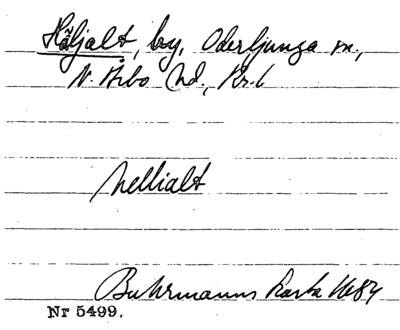 Häljalt, by, Oderljunga sn,
N. Åsbo hd., Kr. l
hellialt
Buhrmanns karta 1684
Nr 5499.